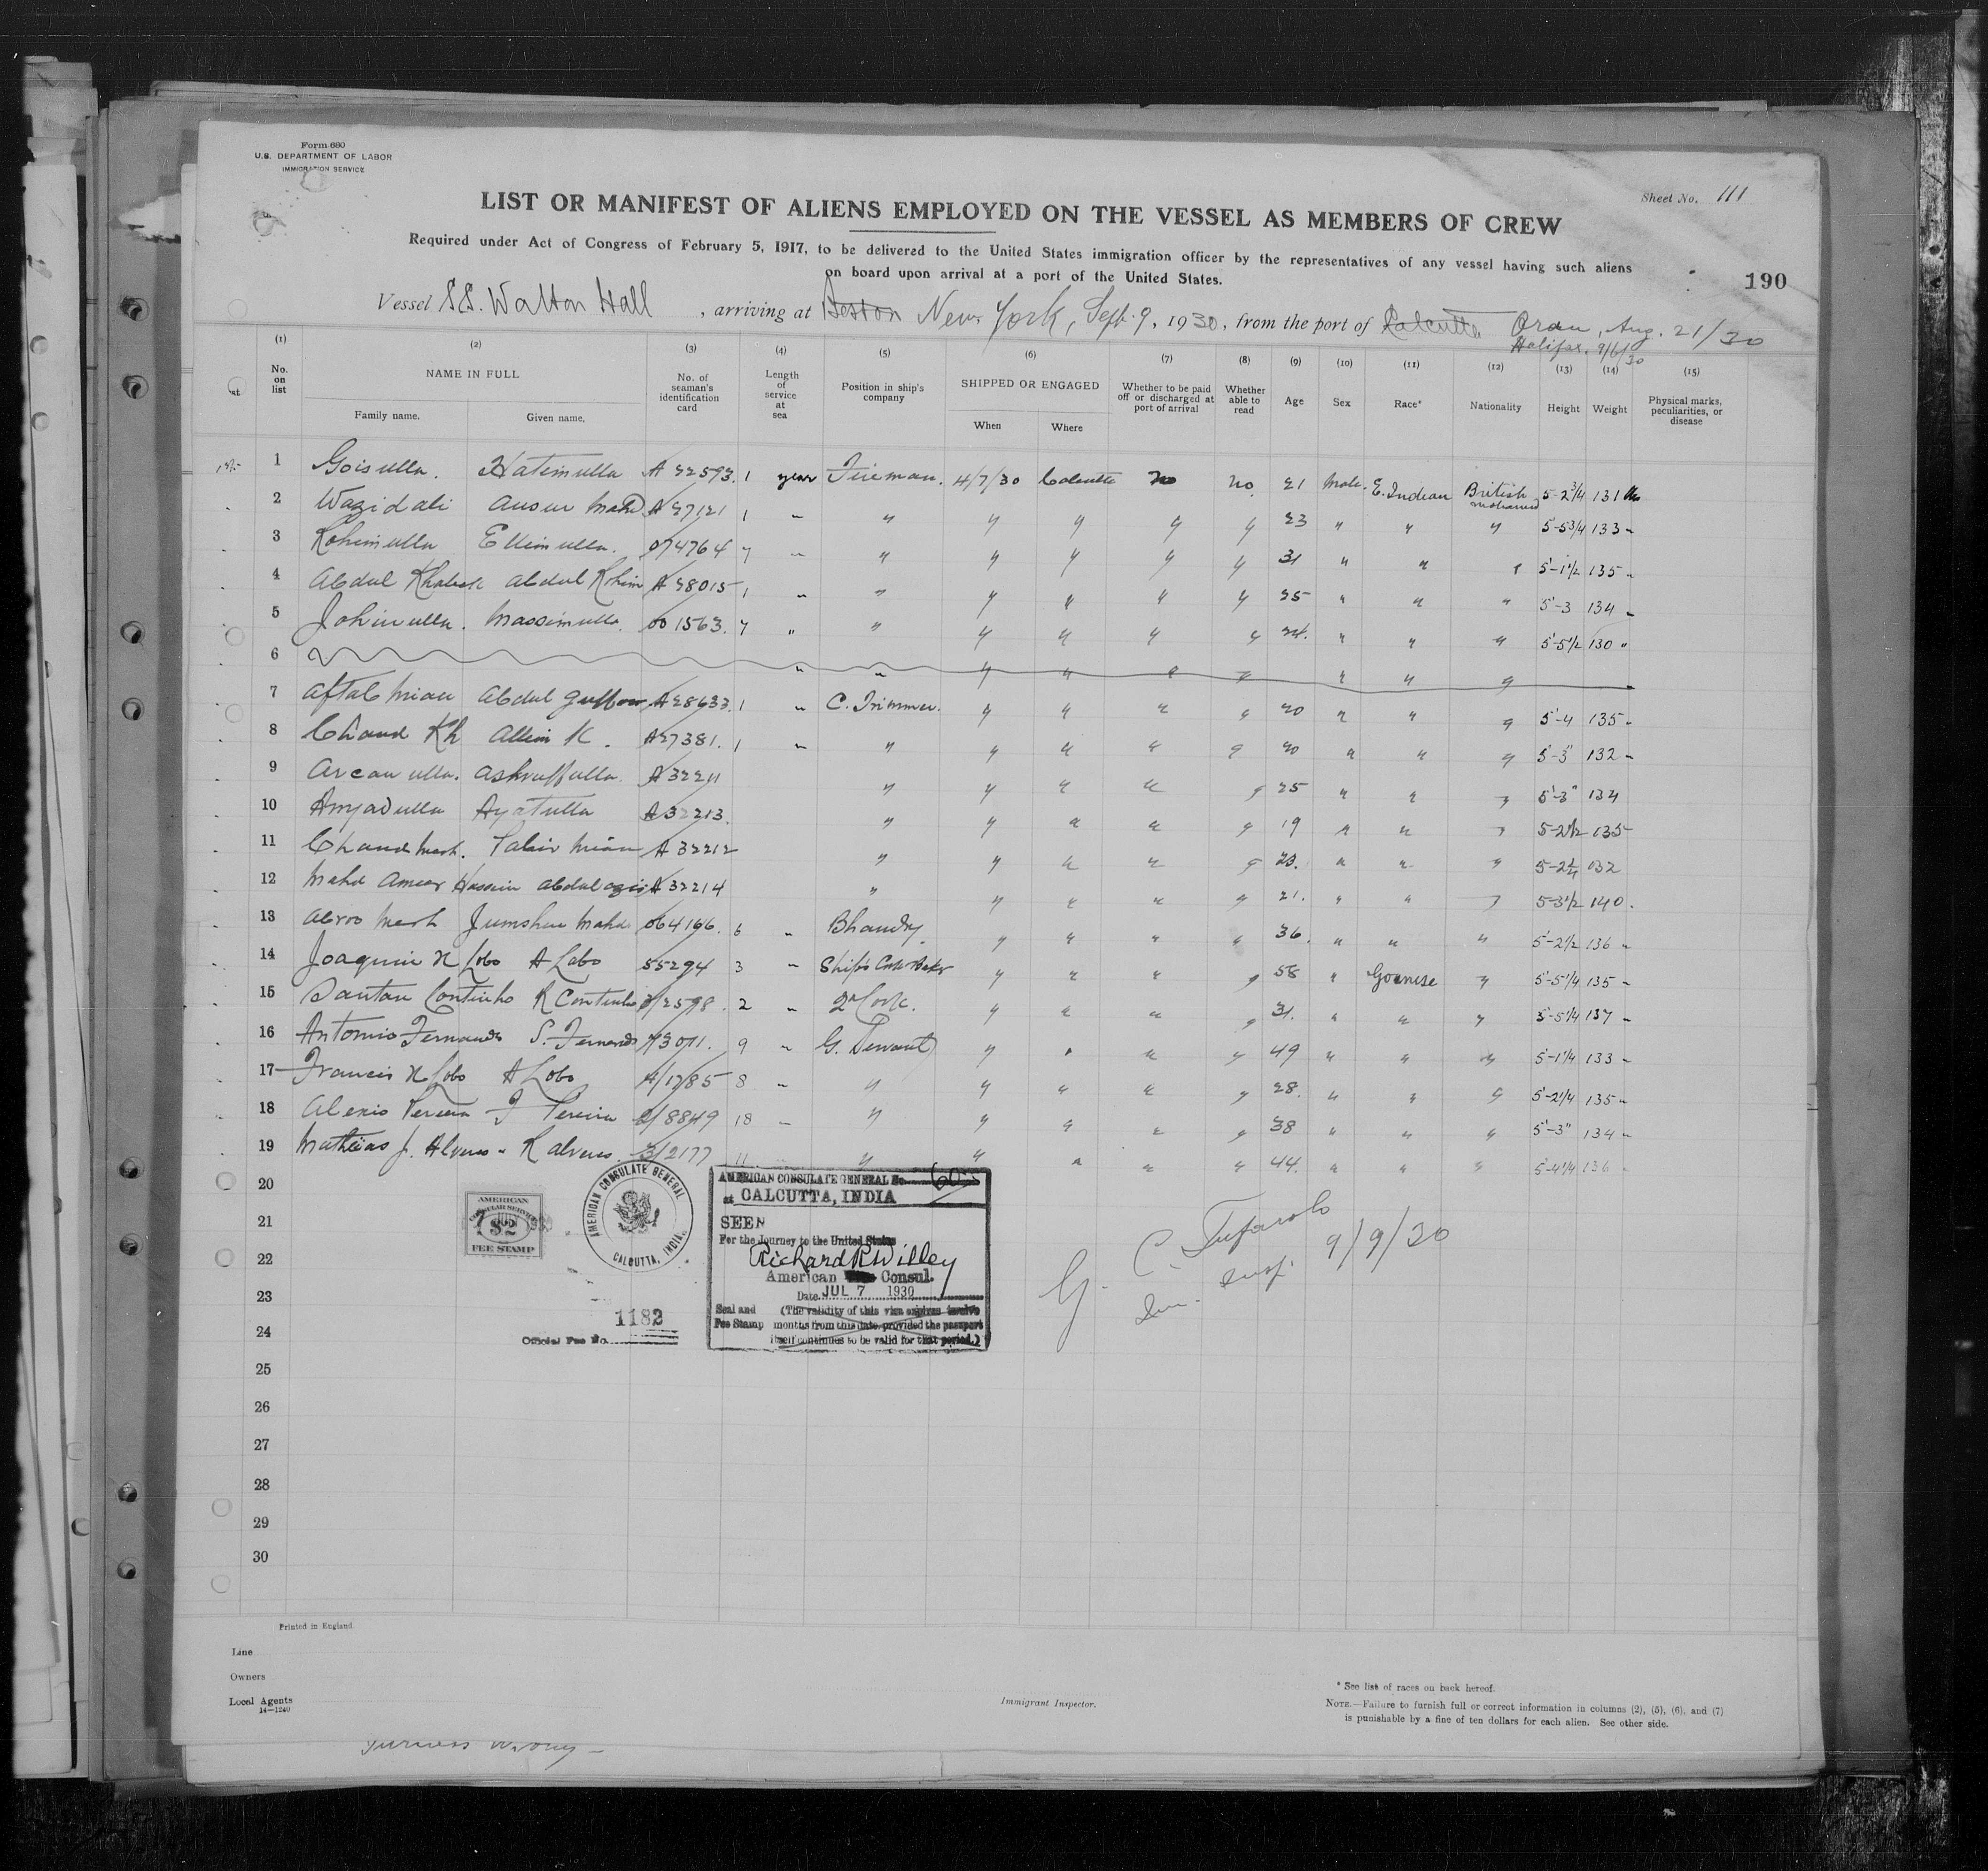 Form 680
U.S. DEPARTMENT OF LABOR
IMMIGRATION SERVICE
Sheet No. 111
LIST OR MANIFEST OF ALIENS EMPLOYED ON THE VESSEL AS MEMBERS OF CREW
Required under Act of Congress of February 5, 1917, to be delivered to the United States immigration officer by the representatives of any vessel having such aliens
on board upon arrival at a port of the United States.
190
Vessel SS. Walton Hall, arriving at Boston New York, Sept. 9, 1930, from the port of Calcutta Oran, Aug. 21/30
Halifax, 9/6/30
(1) (2) (3) (4) (5) (6) (7) (8) (9) (10) (11) (12) (13) (14) (15)
No. on list NAME IN FULL Family name. Given name. No. of seaman's identification card Length of service at sea Position in ship's company SHIPPED OR ENGAGED When Where Whether to be paid off or discharged at port of arrival Whether able to read Age Sex Race* Nationality Height Weight Physical marks, peculiarities, or disease
1 Goisulla. Hatimulla A 22593. 1 year Fireman. 4/7/30 Calcutta No No. 21 Male. E. Indian British 5-2 3/4 131 lbs
2 Wazid ali A 27121 1 " " " " " " 23 " " " 5-5 3/4 133 "
3 Rohimulla Ellimulla. 074764 7 " " " " " " 31 " " " 5'-1 1/2 135 "
4 Abdul Khalick Abdul Rohim A 28015 1 " " " " " " 25 " " " 5'-3 134 "
5 Johirulla. Massimulla. 001563. 7 " " " " " " 24. " " " 5-5 1/2 130 "
6 " " " " " " " " "
7 Aftab Mian Abdul Guffoor A 28633. 1 " C. Trimmer. " " " " 20 " " " 5'-4 135 "
8 Chand Kh Allim K. A 27381. 1 " " " " " " 20 " " " 5'-3" 132 "
9 ulla. Ashruffulla. A 32211 " " " " " 25 " " " 5'-3" 134
10 Amjadulla Ayatulla A 32213. " " " " " 19 " " " 5-2 1/2 135
11 Chand Talib Mian A 32212 " " " " " 23. " " " 5-2 1/4 132
12 Mahd Ameer Hossein Abdul A 32214 " " " " " 21. " " " 5-3 1/2 140.
13 Mahd 064166. 6 " Bhandry " " " " 36. " " " 5'-2 1/2 136 "
14 Joaquim X Lobo A Lobo 55294 3 " Ships Cook " " " " 58 " Goanese " 5'-5 1/4 135 "
15 Santan Continho R Continho 2598. 2 " 2nd Cook. " " " " 31. " " " 5'-5 1/4 137 "
16 Antonio Fernands S. Fernands 9 " G. Servant " " " " 49 " " " 5'-1 1/4 133 "
17 Francis X Lobo A Lobo 8 " " " " " " 28. " " " 5-2 1/4 135 "
18 Alexio Pereira F Pereira 8849 18 " " " " " " 38 " " " 5'-3" 134 "
19 Mathias J. Alvares R Alvares. 3/2177 11 " " " " " 44. " " " 5'-4 1/4 136 "
20
21
22
23
24
25
26
27
28
29
30
AMERICAN
CONSULAR SERVICE
$2
FEE STAMP
AMERICAN CONSULATE GENERAL
CALCUTTA, INDIA.
AMERICAN CONSULATE GENERAL No.
at CALCUTTA, INDIA
SEEN
For the Journey to the United States
Richard R Willey
American Consul.
Date JUL 7 1930
Seal and Fee Stamp (The validity of this visa expires twelve
months from this date, provided the passport
itself continues to be valid for that period.)
1182
Official Fee No.
G. C.
Imm. Insp. 9/9/30
Printed in England.
Line
Owners
Local Agents
14—1240
Immigrant Inspector.
* See list of races on back hereof.
NOTE.—Failure to furnish full or correct information in columns (2), (5), (6), and (7)
is punishable by a fine of ten dollars for each alien. See other side.